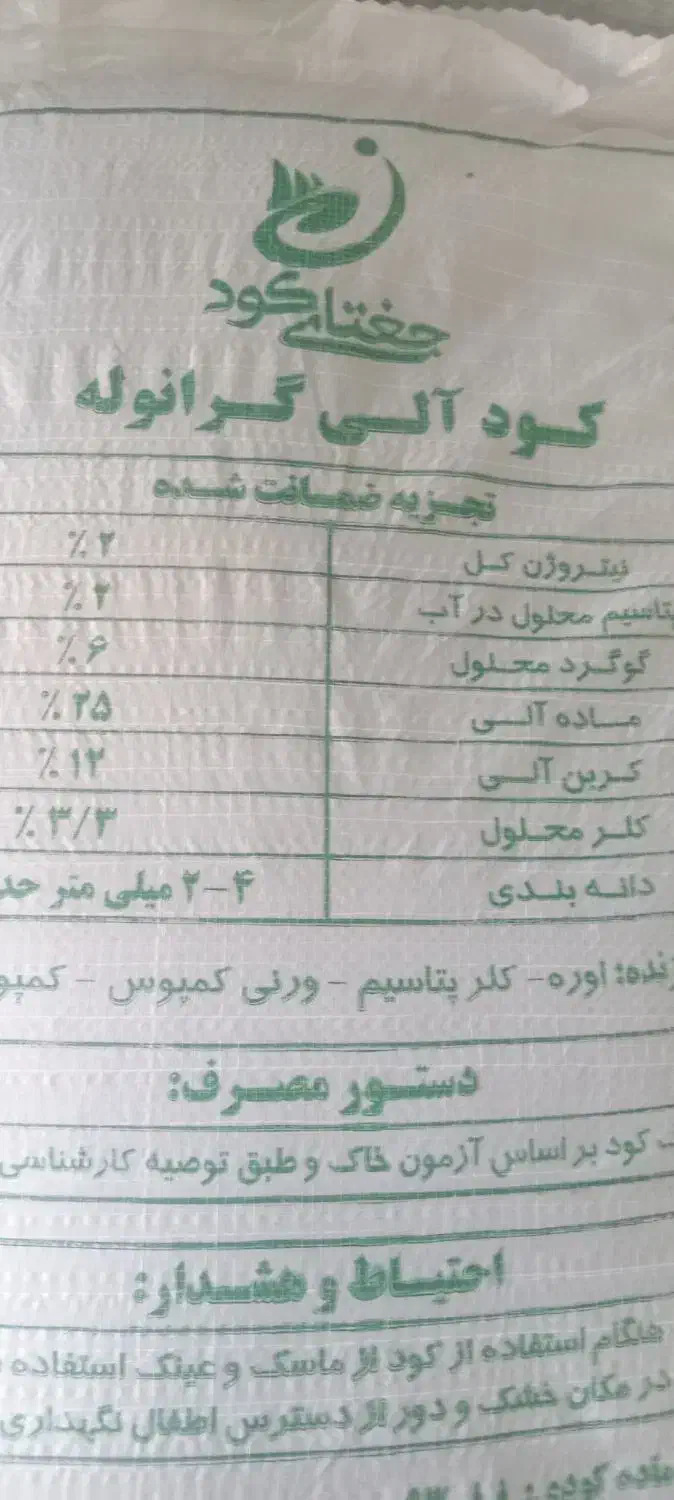 جغتای کود
کود آلی گرانوله
تجزیه ضمانت شده
نیتروژن کل ۲ %
پتاسیم محلول در آب ۲ %
گوگرد محلول ۶ %
ماده آلی ۲۵ %
کربن آلی ۱۲ %
کلر محلول ۳/۳ %
دانه بندی ۴-۲ میلی متر
اوره - کلر پتاسیم - ورنی کمپوس -
دستور مصرف:
کود بر اساس آزمون خاک و طبق توصیه کارشناسی
احتیاط و هشدار:
هنگام استفاده از کود از ماسک و عینک استفاده
در مکان خشک و دور از دسترس اطفال نگهداری